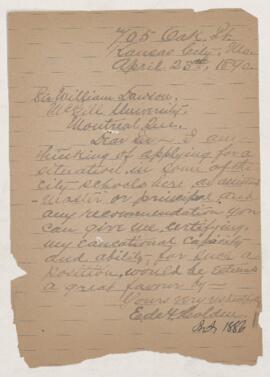 705 Oak St.
Kansas City, Mo.
April 23rd, 1890.
Sir William Dawson,
McGill University,
Montreal Que.
Dear Sir — I am
thinking of applying for a
situation in some of the
city schools here, as assistant
master or principal and
any recommendation you
can give me, certifying
my educational capacity
and ability, for such a
position, would be esteemed
a great favor by —
Yours very respectfully
Holden
1886